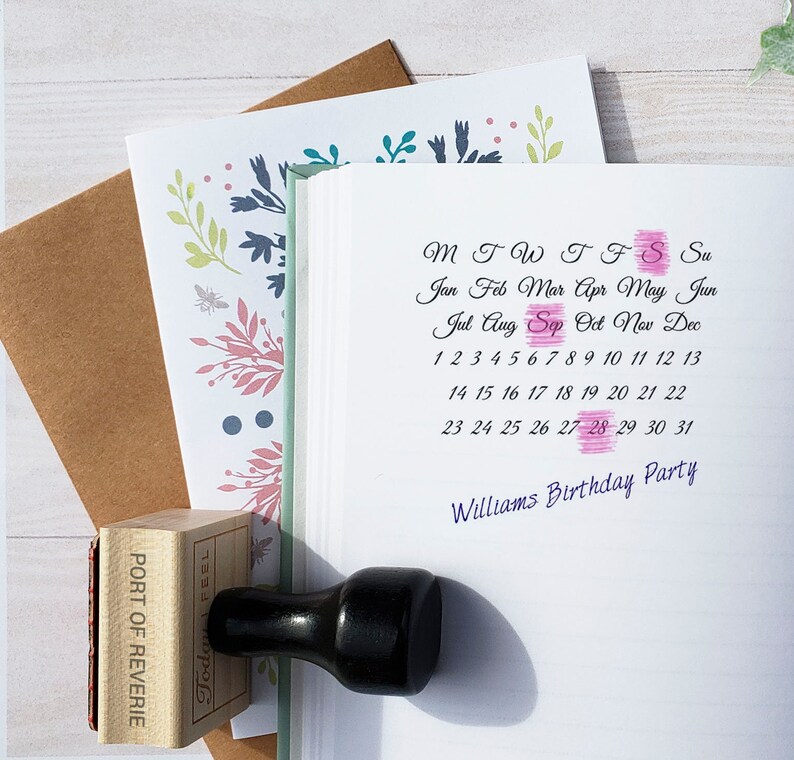 M T W T F S Su
Jan Feb Mar Apr May Jun
Jul Aug Sep Oct Nov Dec
1 2 3 4 5 6 7 8 9 10 11 12 13
14 15 16 17 18 19 20 21 22
23 24 25 26 27 28 29 30 31
Williams Birthday Party
PORT OF REVERIE
Today I FEEL